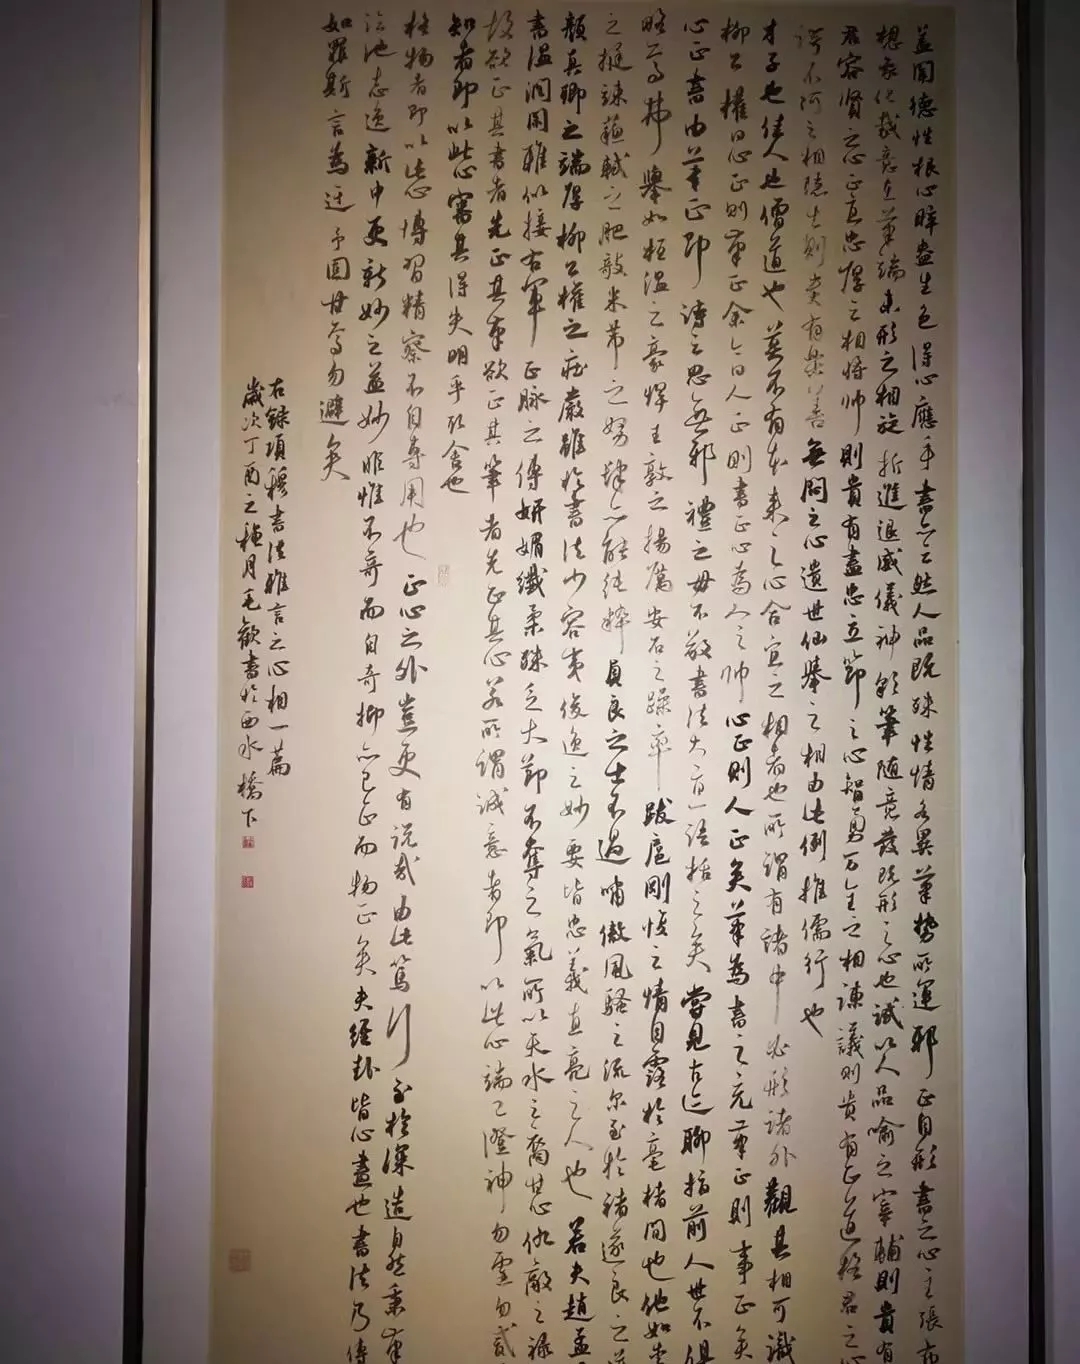 盖聞德性根心睟盎生色得心應手書亦云然人品既殊性情各異筆勢所運邪正自形書之心主張布
想象化裁意在筆端未形之相旋折進退威儀神彩筆随意發既形之心也試以人品喻之宰輔則貴有
君容賢之心正直忠厚之相將帅則貴有盡忠立節之心智勇万全之相諫議則貴有正道格君之心
谔不阿之相隱士則貴有樂善無悶之心遺世仙舉之相由此例推儒行也
才子也佳人也僧道也莫不有本来之心合宜之相者也所謂有諸中必形諸外觀其相可識
柳公權曰心正則筆正余今曰人正則書正心為人之帅心正則人正矣筆為書之充筆正則事正矣
心正書由筆正即詩云思無邪禮云毋不敬書法大旨一語括之矣嘗見古迹聊指前人世不俱
略焉弗舉如桓温之豪悍王敦之揚厲安石之躁率跋扈剛愎之情自露於毫楮間也他如李
之挺竦蘇軾之肥欹米芾之努肆亦能纯粹貞良之士不過嘯傲風騷之流尔至於褚遂良之遒
顏真卿之端厚柳公權之莊嚴雖於書法少容夷俊逸之妙要皆忠義直亮之人也若夫趙孟
書温潤閑雅似接右軍正脉之傳妍媚纖柔殊乏大節不奪之氣所以天水之裔甘心仇敵之禄
故欲正其書者先正其筆欲正其筆者先正其心若所謂誠意者即以此心端己澄神勿虛勿貳
知者即以此心審其得失明乎取舍也
格物者即以此心博習精察不自專用也正心之外豈更有説哉由此篤行至於深造自然秉筆
临池志逸新中更新妙之益妙非惟不奇而自奇抑亦己正而物正矣夫經卦皆心畫也書法乃傳
如罪斯言為迂予固甘焉勿避矣
右録項穆書法雅言之心相一篇
歲次丁酉之秋月毛歡書於西水橋下